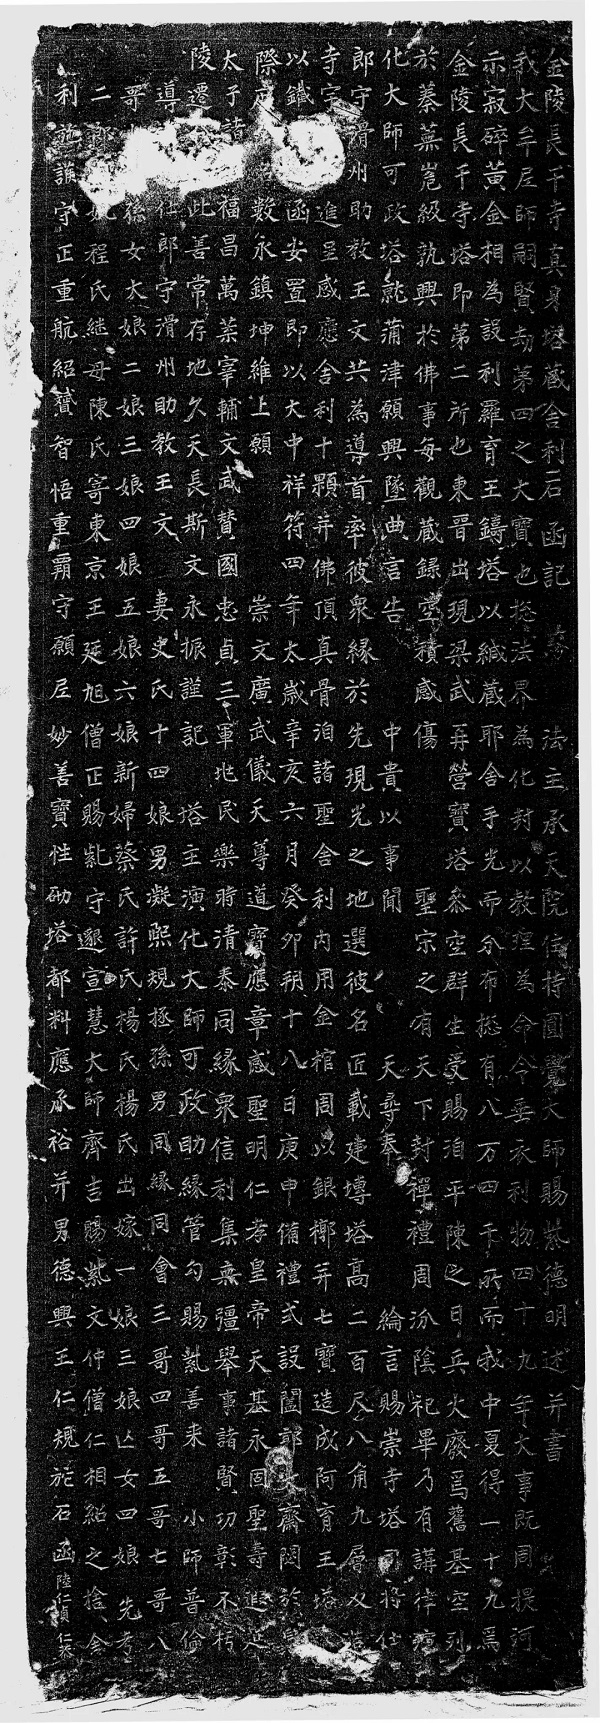 金陵長干寺真身塔藏舍利石函記 法主承天院住持圓覺大師賜紫德明述并書
我大牟尼師嗣賢劫第四之大寶也捴法界為化封以教理為命令垂衣利物四十九年大事既周提河
示寂碎黃金相為設利羅育王鑄塔以緘藏耶舍手光而分布捴有八万四千所而我中夏得一十九焉
金陵長干寺塔即第二所也東晋出現梁武再營寶塔參空群生受賜洎平陳之日兵火廢焉舊基空列
於蓁蕪峞級孰興於佛事每觀藏錄空積感傷 聖宋之有天下封禪禮周汾陰祀畢乃有講律演
化大師可政塔就蒲津願興墜典言告 中貴以事聞 天尋奉 綸言賜崇寺塔同將仕
郎守滑州助教王文共為導首率彼衆緣於先現光之地選彼名匠載建塼塔高二百尺八角九層又造
寺宇 進呈感應舍利十顆并佛頂真骨洎諸聖舍利內用金棺周以銀槨并七寶造成阿育王塔
以鐵 函安置即以大中祥符四年太歲辛亥六月癸卯朔十八日庚申備禮式設闔郭大齋閟於
際 數永鎮坤維上願 崇文廣武儀天尊道寶應章感聖明仁孝皇帝天基永固聖壽遐延
太子諸 福昌萬葉宰輔文武贊國忠貞三軍兆民樂時清泰同緣衆信利集無彊舉事諸賢功彰不朽
陵遷 此善常存地久天長斯文永振謹記 塔主演化大師可政助緣管勾賜紫善來 小師普倫
導 仕郎守滑州助教王文 妻史氏十四娘男凝熙規拯孫男同緣同會三哥四哥五哥七哥八
哥 孫女大娘二娘三娘四娘五娘六娘新婦蔡氏許氏楊氏楊氏出嫁一娘三娘亡女四娘先考
二郎 程氏継母陳氏寄東京王延旭僧正賜紫守邃宣慧大師齊吉賜紫文仲僧仁相紹之捨舍
利 守正重航紹贇智悟重霸守願尼妙善寶性砌塔都料應承裕并男德興王仁規施石函陸仁貞仁恭